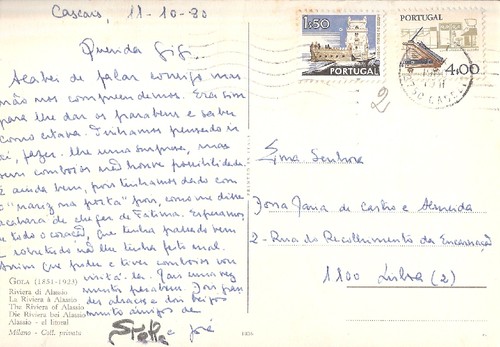 Cascais, 11-10-80
Querida Gigi,
Acabei de falar consigo mas
não nos compreendemos. Era sim
para lhe dar os parabens e saber
como estava. Tinhamos pensado ir
aí, fazer-lhe uma surpresa, mas
sem comboios não houve possibilidade.
E ainda bem, pois tinhamos dado com
o "nariz na porta" pois, como me disse
acabara de chegar de Fátima. Esperamos,
de todo o coração, que tenha passado bem
e sobretudo não lhe tenha feito mal.
Assim que puder e tiver comboios vou
visitá-la. Mais uma vez
muitos parabens. Dois
abraços e dois beijos
muito amigos de
Stella
e José
GOLA (1851-1923)
Riviera di Alassio
La Riviera à Alassio
The Riviera of Alassio
Die Riviera bei Alassio
Alassio - el litoral
Milano - Coll. privata
1$50
PORTUGAL
PORTUGAL
4$00
2
Exma Senhora
Dona Maria de Castro e Almeida
2 - Rua do Recolhimento da Encarnação
1100 Lisboa (2)